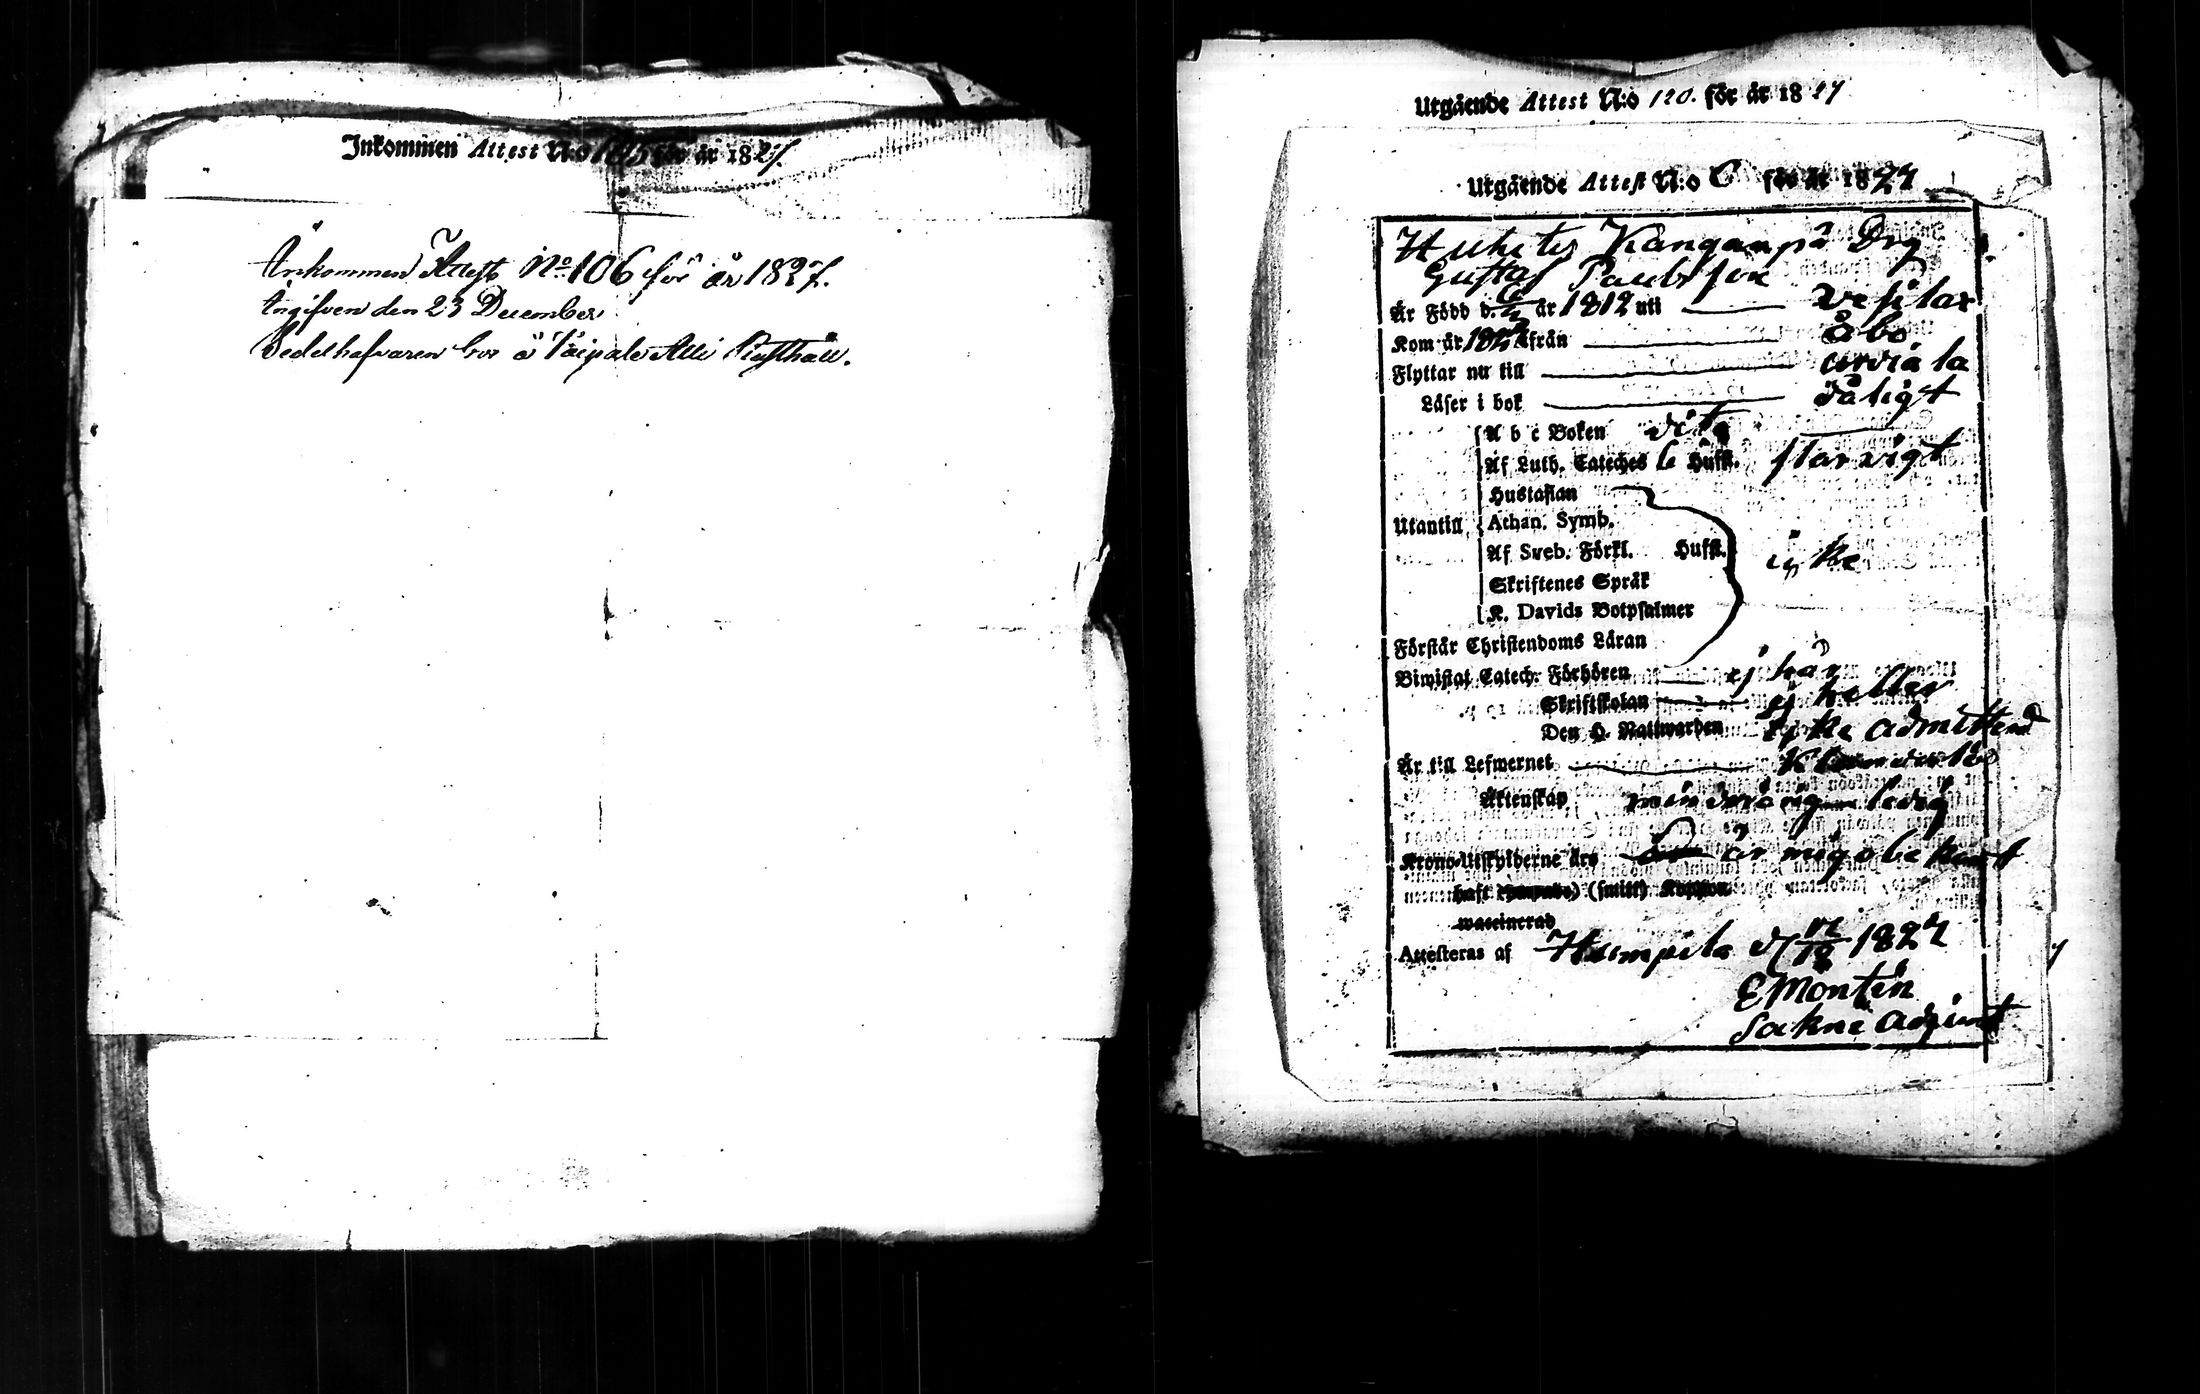 Inkommen Attest N:o 105 för år 1827.
Inkommen Attest No 106 för år 1827.
Angifven den 23 December
Sedelhafvaren bor å Taipale Alli Rusthåll.
Utgående Attest N:o 120. för år 1827
Utgående Attest N:o 6 för år 1827
Huhtis Kanganpä Drg
Gustaf Paulsson
Är Född d. år 1812 uti Vesilax
Kom år från Åbo
Flyttar nu till urdiala
Läser i bok dåligt
A b c Boken dito
Af Luth. Cateches le Hufst. slarvigt
Hustaflan
Utantill Athan. Symb.
Af Sveb. Förkl. Hufst. icke
Skriftenes Språk
K. Davids Botpsalmer
Förstår Christendoms Läran
Biwistat Catech. Förhören ej här
Skriftskolan ej heller
Den H. Nattwarden icke admitterad
Är till Lefwernet
Äktenskap minderårig ledig
Krono-Utskylderne års är mig obekant
haft (smitt) Koppor
waccinerad
Attesteras af Humpila d 17/12 1827
E Montin
Sokne Adjunct